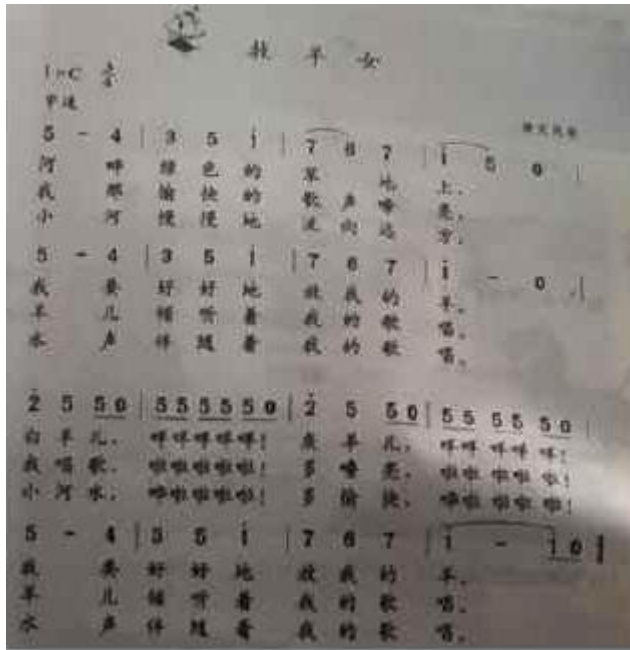 牧羊女
1=C 3/4
中速
5 - 4 | 3 5 i | 7 6 7 | i 5 0 |
河 畔 绿 色 的 草 地 上,
我 那 愉 快 的 歌 声 嘹 亮,
小 河 慢 慢 地 流 向 远 方,
5 - 4 | 3 5 i | 7 6 7 | i - 0 |
我 要 好 好 地 放 我 的 羊。
羊 儿 倾 听 着 我 的 歌 唱。
水 声 伴 随 着 我 的 歌 唱。
2 5 5 0 | 5 5 5 5 5 0 | 2 5 5 0 | 5 5 5 5 5 0 |
白 羊 儿, 咩咩咩咩咩! 羊 儿, 咩咩咩咩 咩!
我 唱 歌, 啦啦啦啦啦! 多 嘹 亮, 啦啦啦啦 啦!
小 河 水, 哗啦啦啦啦! 多 愉 快, 哗啦啦啦 啦!
5 - 4 | 3 5 i | 7 6 7 | i - i 0
我 要 好 好 地 放 我 的 羊。
羊 儿 倾 听 着 我 的 歌 唱。
水 声 伴 随 着 我 的 歌 唱。